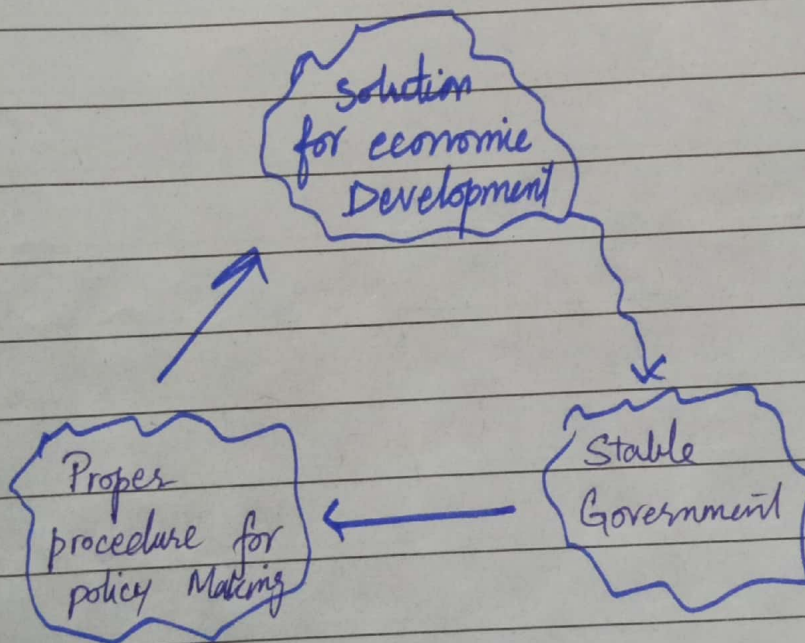 Solution
for economic
Development
Stable
Government
Proper
procedure for
policy Making